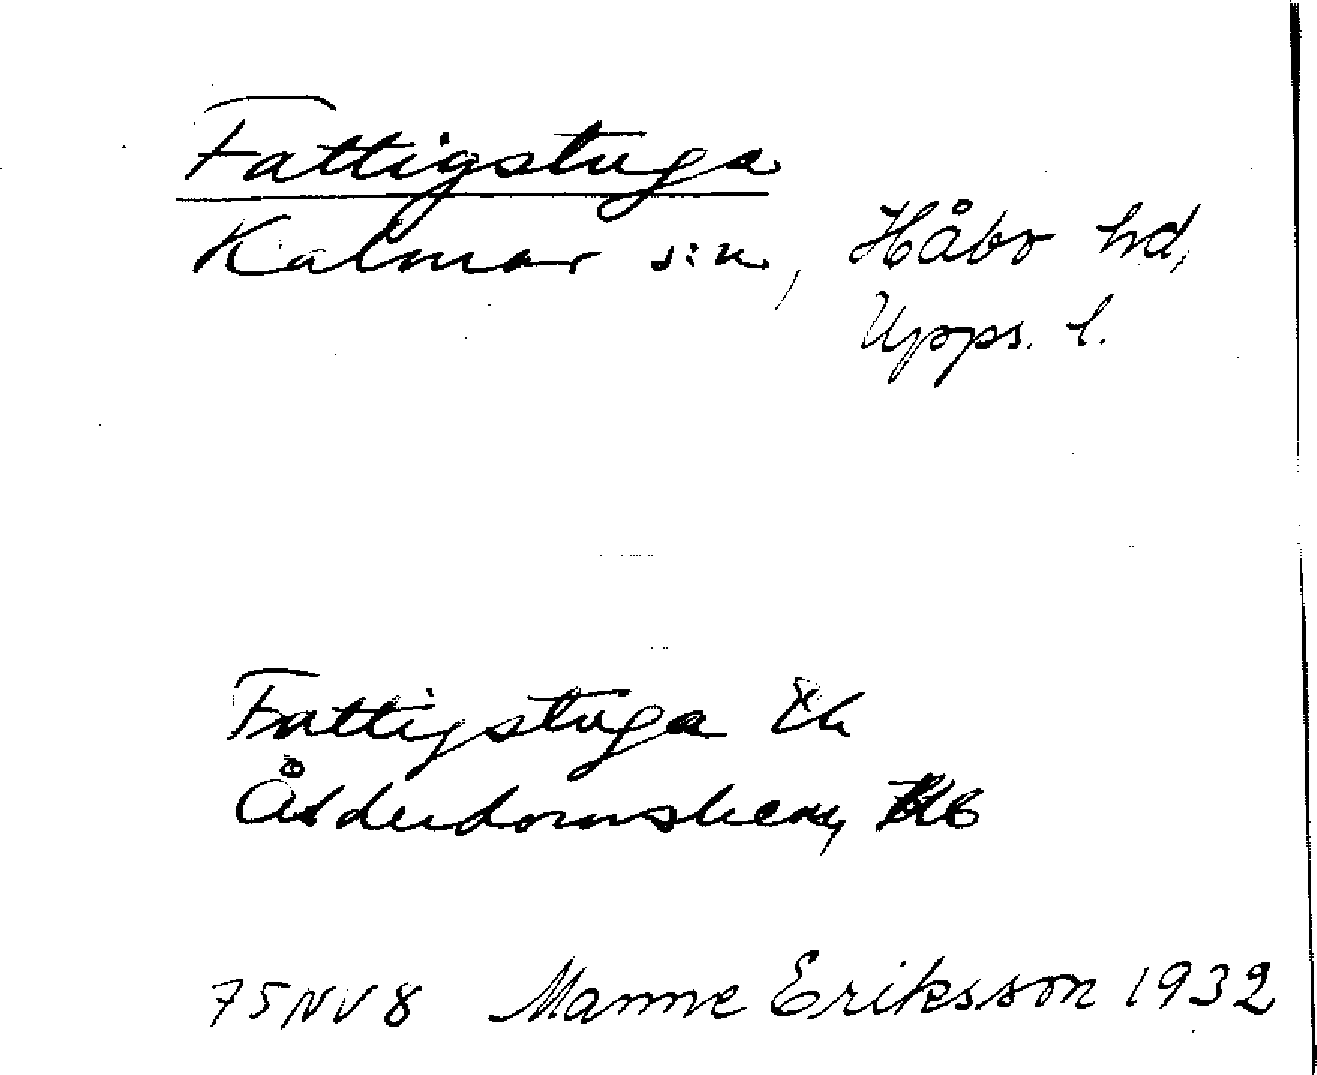 Fattigstuga
Kalmar s:n, Håbo hd,
Upps. l.
Fattigstuga Ek
Ålderdomshem,
75 NV 8 Manne Eriksson 1932